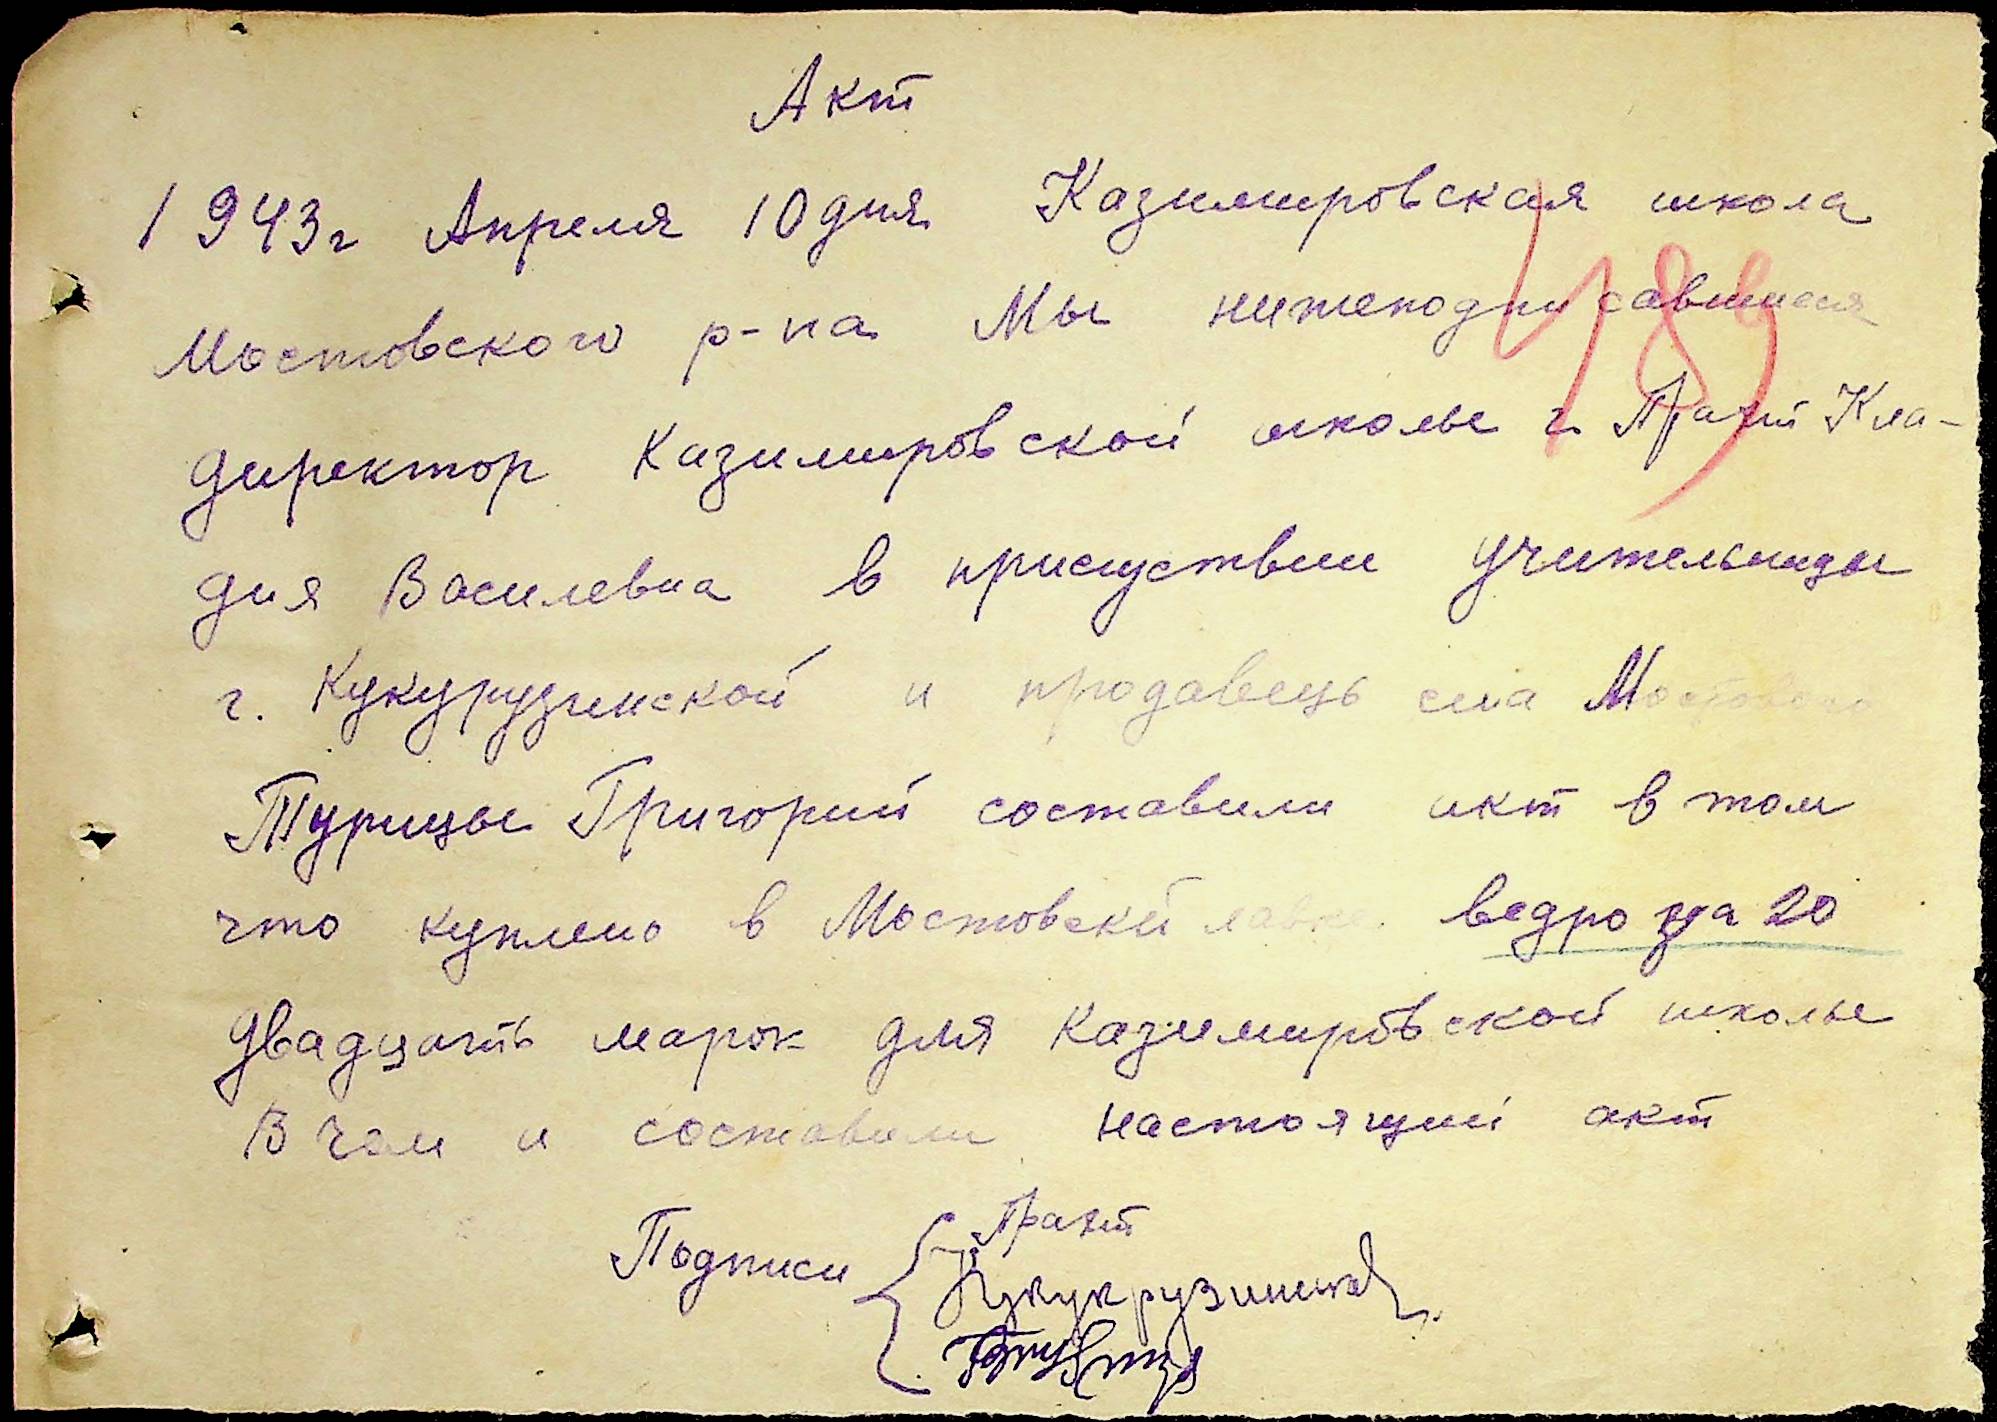 Акт
1943г Апреля 10 дня Казимировская школа
Мостовского р-на Мы нижеподписавшиеся
директор Казимировской школы г. Кла-
дия Василевна в присуствии учительницы
г. Кукурузинской и продавець села Мостового
Турицы Григорий составили акт в том
что куплено в Мостовскей лавке ведро за 20
двадцать марок для Казимировской школы
В чем и составили настоящий акт
Подписи
Кукурузинская